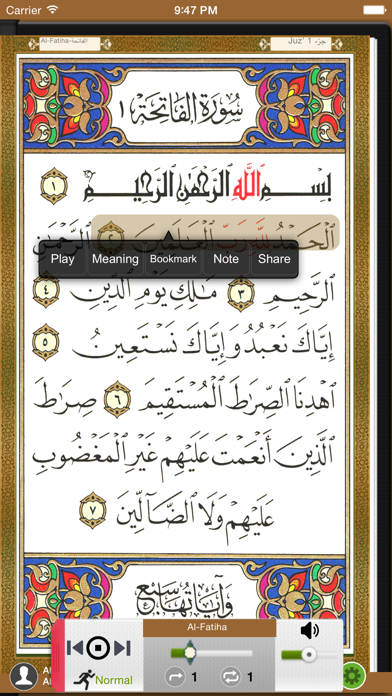 Carrier 9:47 PM
Al-Fatiha-الفاتحة Juz' 1 جزء
سُورَةُ الفَاتِحَةِ ١
بِسْمِ ٱللَّهِ ٱلرَّحْمَٰنِ ٱلرَّحِيمِ ١
ٱلْحَمْدُ لِلَّهِ رَبِّ ٱلْعَٰلَمِينَ ٱلرَّحْمَٰنِ
Play Meaning Bookmark Note Share
ٱلرَّحِيمِ ٣ مَٰلِكِ يَوْمِ ٱلدِّينِ ٤
إِيَّاكَ نَعْبُدُ وَإِيَّاكَ نَسْتَعِينُ ٥
ٱهْدِنَا ٱلصِّرَٰطَ ٱلْمُسْتَقِيمَ ٦ صِرَٰطَ
ٱلَّذِينَ أَنْعَمْتَ عَلَيْهِمْ غَيْرِ ٱلْمَغْضُوبِ
عَلَيْهِمْ وَلَا ٱلضَّآلِّينَ ٧
وَآيَاتُهَا سَبْعٌ
Al-Fatiha
Normal 1 1